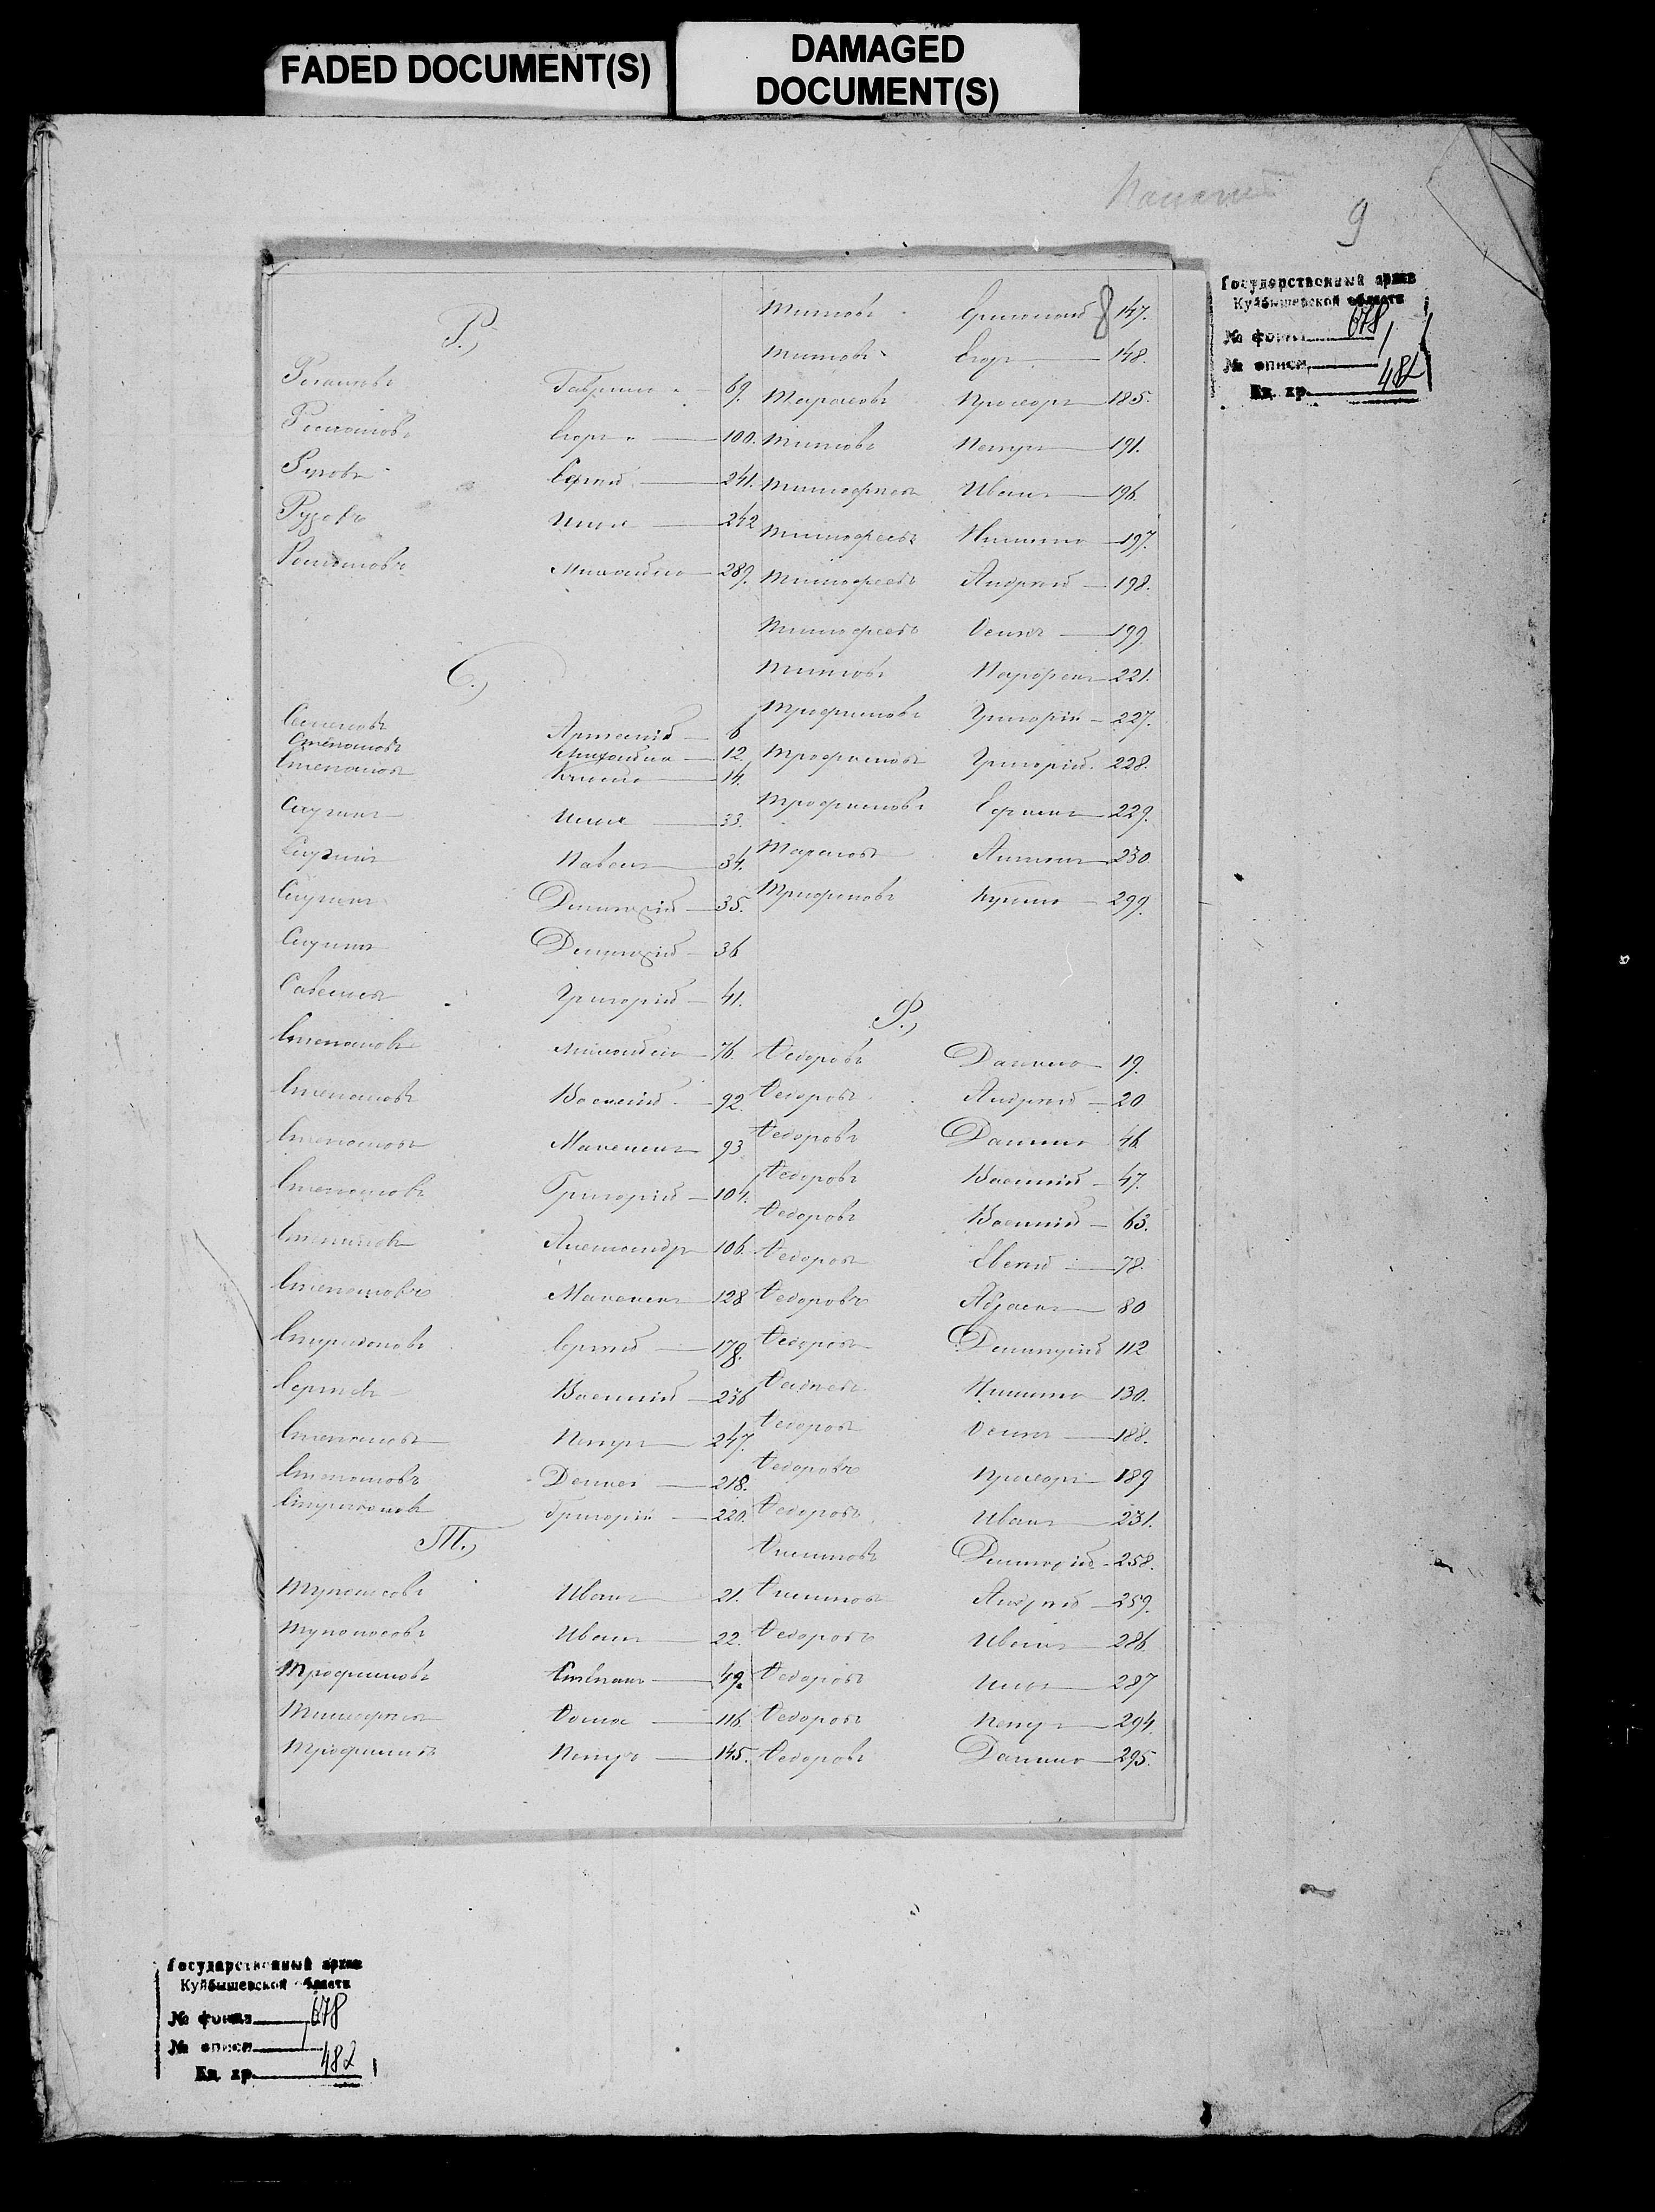 FADED DOCUMENT(S)
DAMAGED
DOCUMENT(S)
9
Государственный архив
Куйбышевской области
№ фонда 678
№ описи 1
Ед. хр. 482
8
Р.,
Гаврило 69.
Романовъ Егоръ 100.
Сергѣй 241.
Рузовъ Илья 242
Романовъ Михайло 289.
С.,
Семеновъ Артемій 6
Степановъ Михайло 12.
Степановъ 14.
Илья 33.
Павелъ 34.
Димитрій 35.
Димитрій 36
Савельевъ Григорій 41.
Степановъ Михайло 76.
Степановъ Василій 92.
Степановъ Максимъ 93
Степановъ Григорій 104.
Степановъ Александръ 106.
Степановъ Максимъ 128
Спиридоновъ Сергѣй 178.
Сергѣевъ Василій 236
Степановъ Петръ 247.
Степановъ Денисъ 218.
Спиридоновъ Григорій 220.
Т.,
Тупоносовъ Иванъ 21.
Тупоносовъ Иванъ 22.
Трофимовъ Степанъ 49.
Тимофеевъ Ѳома 116.
Трофимовъ Петръ 145.
Титовъ 147.
Титовъ Егоръ 148.
Тарасовъ Прохоръ 185.
Титовъ Петръ 191.
Тимофеевъ Иванъ 196
Тимофеевъ Никита 197.
Тимофеевъ Андрей 198.
Тимофеевъ Осипъ 199.
Титовъ Парфенъ 221.
Трифоновъ Григорій 227.
Трофимовъ Григорій 228.
Трофимовъ Ефимъ 229.
Тарасовъ Антонъ 230
Трифоновъ 299.
Ѳ.,
Ѳедоровъ Данило 19.
Ѳедоровъ Андрей 20
Ѳедоровъ Данило 46
Ѳедоровъ Василій 47.
Ѳедоровъ Василій 63.
Ѳедоровъ Евсей 78.
Ѳедоровъ 80
Ѳедоровъ Димитрій 112
Никита 130.
Ѳедоровъ Осипъ 188.
Ѳедоровъ Прохоръ 189
Ѳедоровъ Иванъ 231.
Филиповъ Димитрій 258.
Филиповъ Андрей 259.
Ѳедоровъ Иванъ 286.
Ѳедоровъ Илья 287
Ѳедоровъ Петръ 294.
Ѳедоровъ Данило 295.
Государственный архив
Куйбышевской области
№ фонда 678
№ описи 1
Ед. хр. 482